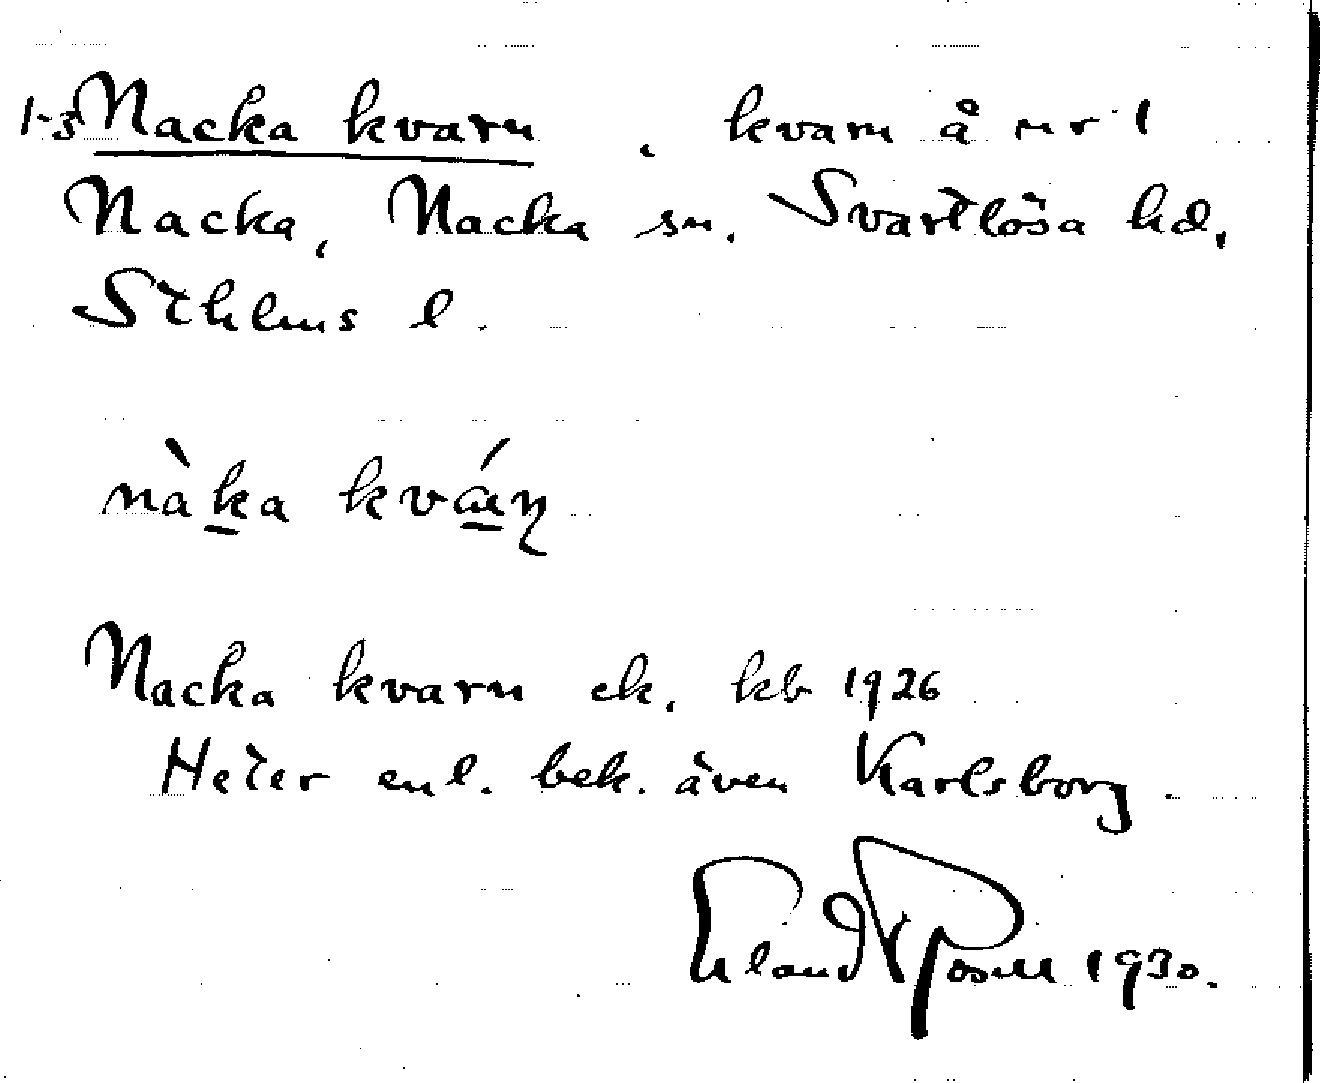 1-3 Nacka kvarn, kvarn å nr 1
Nacka, Nacka sn. Svartlösa hd,
Sthlms l.
nàka kváɳ
Nacka kvarn ek. kb 1926
Heter enl. bek. även Karlsborg.
Erland Rosell 1930.